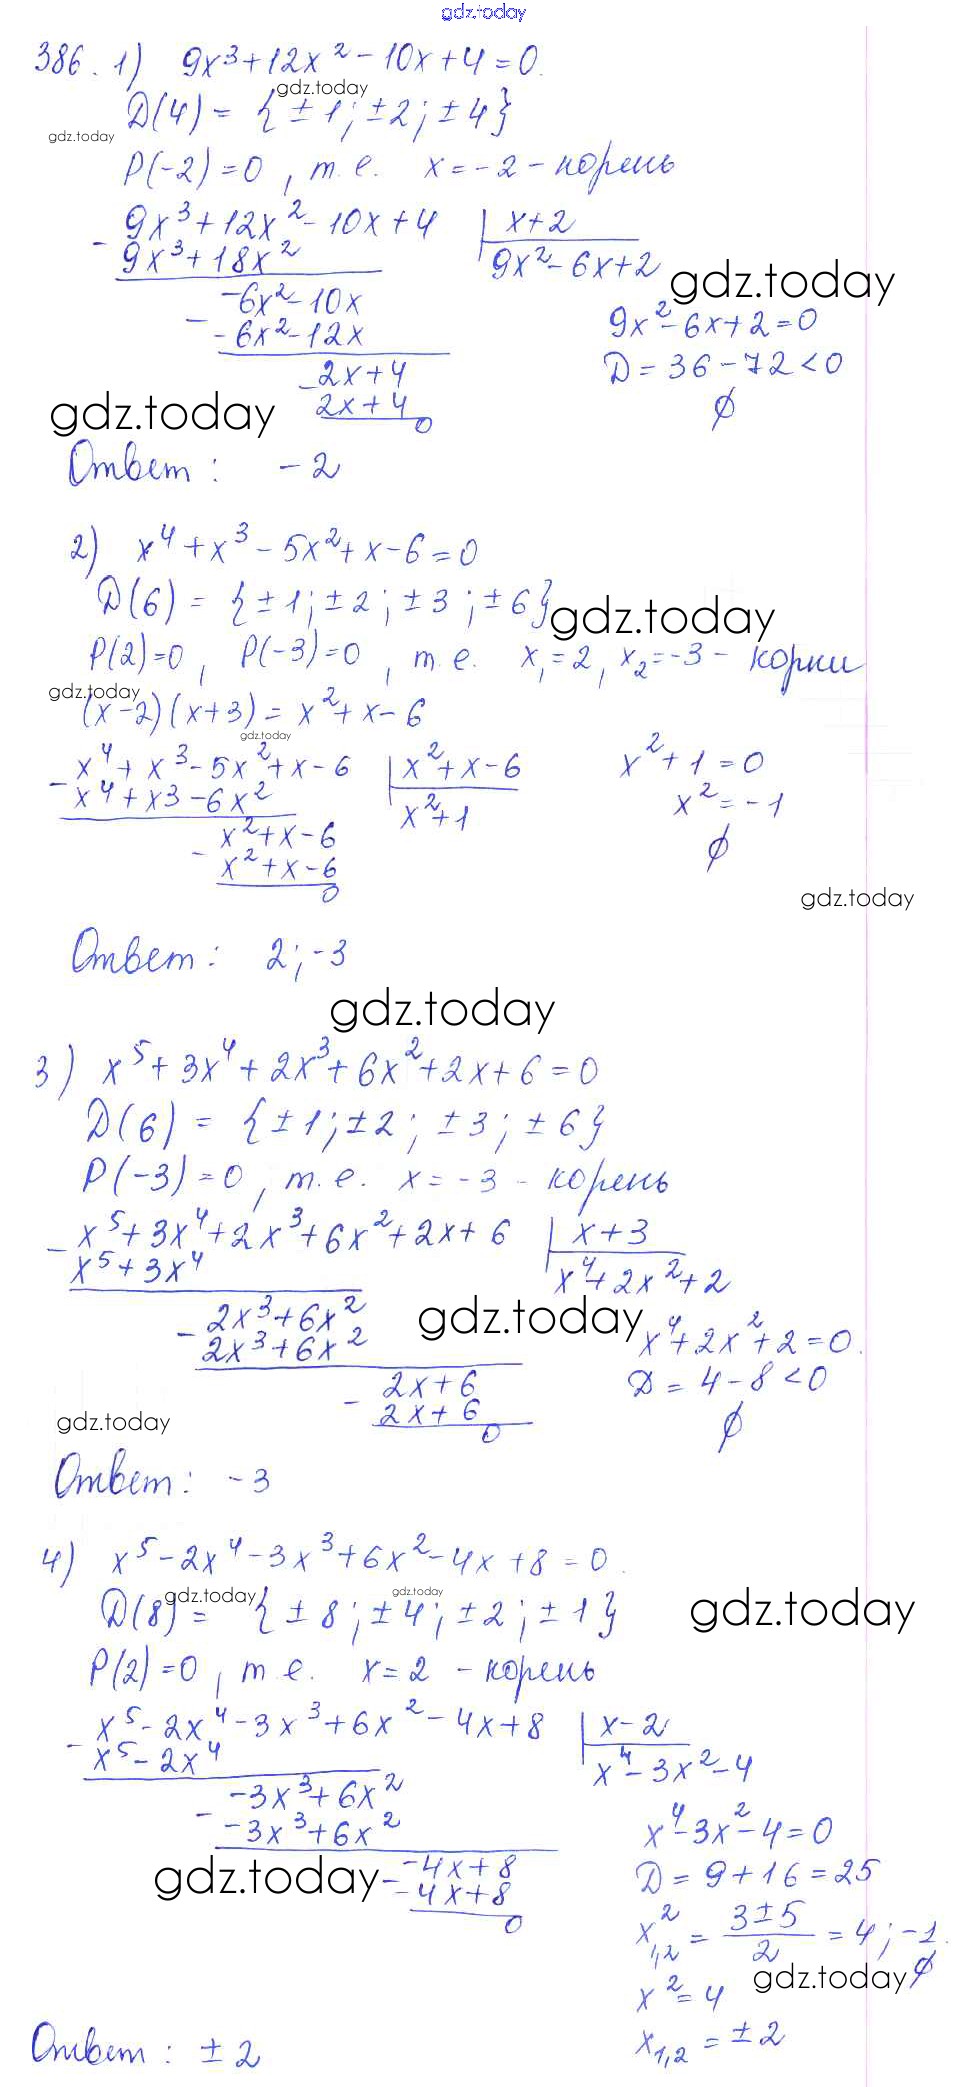 gdz.today
386. 1) 9x³+12x²-10x+4=0.
gdz.today
D(4) = {±1; ±2; ±4}
gdz.today
P(-2)=0, т.е. x=-2 - корень
- 9x³+12x²-10x+4 | x+2
9x³+18x² 9x²-6x+2
gdz.today
- -6x²-10x
-6x²-12x
9x²-6x+2=0
- 2x+4
D=36-72<0
2x+4
0
∅
gdz.today
Ответ: -2
2) x⁴+x³-5x²+x-6=0
D(6) = {±1; ±2; ±3; ±6}
gdz.today
P(2)=0, P(-3)=0, т.е. x₁=2, x₂=-3 - корни
gdz.today
(x-2)(x+3)=x²+x-6
gdz.today
- x⁴+x³-5x²+x-6 | x²+x-6
x⁴+x³-6x² x²+1
x²+1=0
x²=-1
- x²+x-6
x²+x-6
0
∅
gdz.today
Ответ: 2; -3
gdz.today
3) x⁵+3x⁴+2x³+6x²+2x+6=0
D(6) = {±1; ±2; ±3; ±6}
P(-3)=0, т.е. x=-3 - корень
- x⁵+3x⁴+2x³+6x²+2x+6 | x+3
x⁵+3x⁴ x⁴+2x²+2
- 2x³+6x²
2x³+6x²
gdz.today
x⁴+2x²+2=0.
- 2x+6
D=4-8<0
2x+6
0
∅
gdz.today
Ответ: -3
4) x⁵-2x⁴-3x³+6x²-4x+8=0.
D(8) = {±8; ±4; ±2; ±1}
gdz.today
gdz.today
gdz.today
P(2)=0, т.е. x=2 - корень
- x⁵-2x⁴-3x³+6x²-4x+8 | x-2
x⁵-2x⁴ x⁴-3x²-4
- -3x³+6x²
-3x³+6x²
x⁴-3x²-4=0
gdz.today
- -4x+8
-4x+8
0
D=9+16=25
x²₁,₂ = (3±5)/2 = 4; -1.
∅
gdz.today
x²=4
x₁,₂=±2
Ответ: ±2